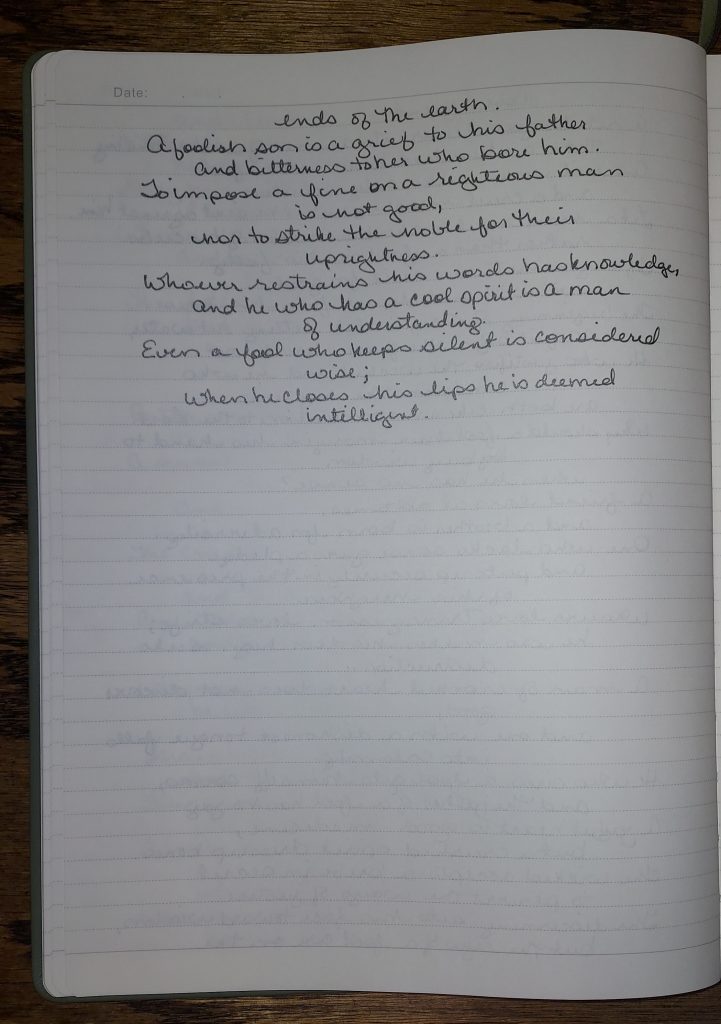 Date:
ends of the earth.
A foolish son is a grief to his father
and bitterness to her who bore him.
To impose a fine on a righteous man
is not good,
nor to strike the noble for their
uprightness.
Whoever restrains his words has knowledge,
and he who has a cool spirit is a man
of understanding.
Even a fool who keeps silent is considered
wise;
When he closes his lips he is deemed
intelligent.